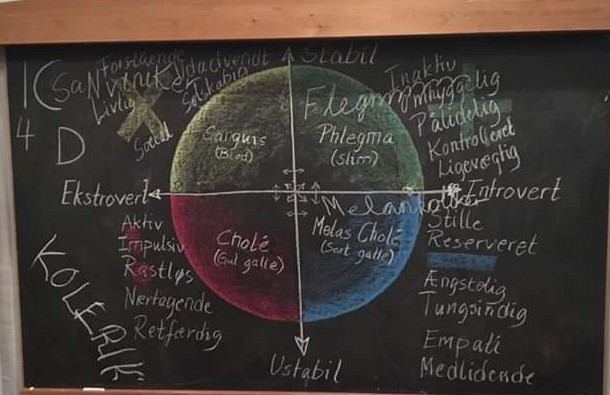 Stabil
Forstående
Udadvendt
Selskabelig
Livlig
Social
Inaktiv
Omhyggelig
Pålidelig
Kontrolleret
Ligevægtig
4
D
Sanguis
(Blod)
Phlegma
(slim)
Ekstrovert
Introvert
Aktiv
Impulsiv
Rastløs
Nertagende
Retfærdig
KOLERIK
Cholé
(Gul galle)
Melas Cholé
(Sort galle)
Stille
Reserveret
Ængstelig
Tungsindig
Empati
Medlidende
Ustabil